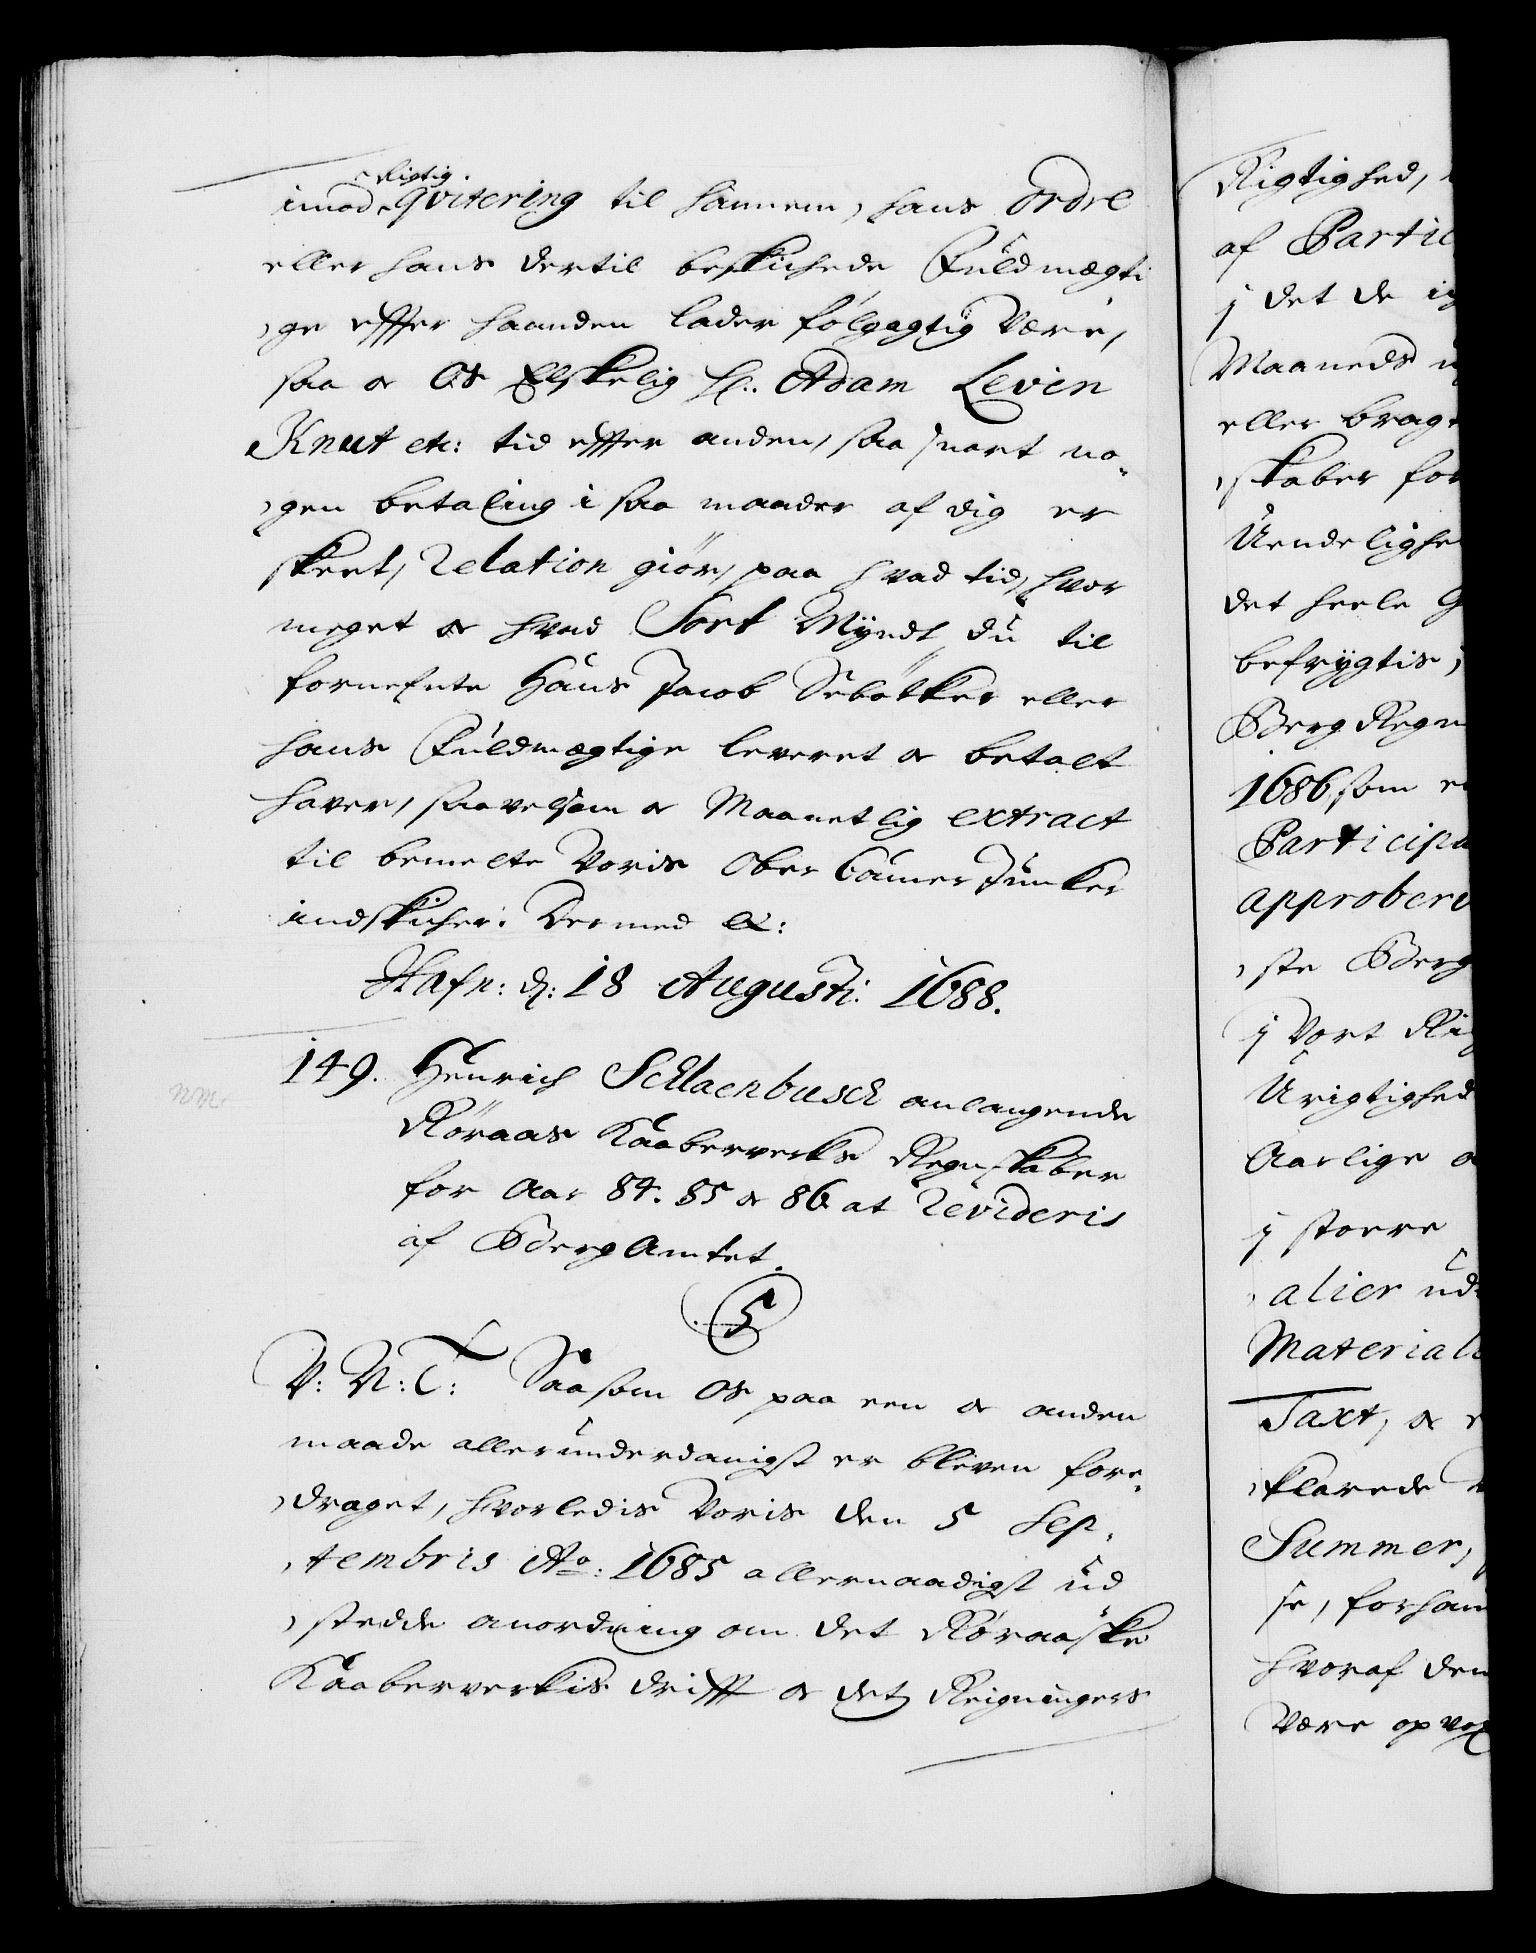 Rigtig
imod Qvitering til hannem, hans Ordre
eller hans dertil beskichede Fuldmægti
ge effter haanden lader følgagtig være,
saa og Os Elskelig H. Adam Levin
Knut etc: tid effter anden, saa snart no-
gen betaling i saa maader af dig er
skeet, Relation giør, paa hvad tid, hvor
meget og hvad Sort Myndt du til
fornefnte Hans Jacob Sebötker eller
hans Fuldmægtige leveret og betalt
haver, saavelsom og Maanetlig extract
til bemelte Voris Ober Camer Junker
indskicher. Dermed &:
Hafn: d: 18 Augusti. 1688.
149. Henrich Schlaenbusch anlangende
Røraas Kaaberverks Regnskaber
for Aar 84. 85 og 86 at Revideris
af Berg Amtet.
5
V: N: T: Saasom Os paa een og anden
maade allerunderdanigst er bleven fore-
draget, hvorledis Voris den 5 Sep-
tembris Ao: 1685 allernaadigst ud
stedde anordning om det Røraaske
Kaaberverkis drifft og detz Reigningers
Rigtighed,
af Partic
j det de ig
Maaneds
eller bragt
skaber for
Uendelighe
det heele G
befrygtis,
Berg Regn
1686, som
Participa
approbere
ste Berg
j Vort Ri
Urigtighed
Aarlige
j større
alier ud
Materiali
Taxt, og
klarede
Summer,
se, forhan
hvoraf den
være opvox